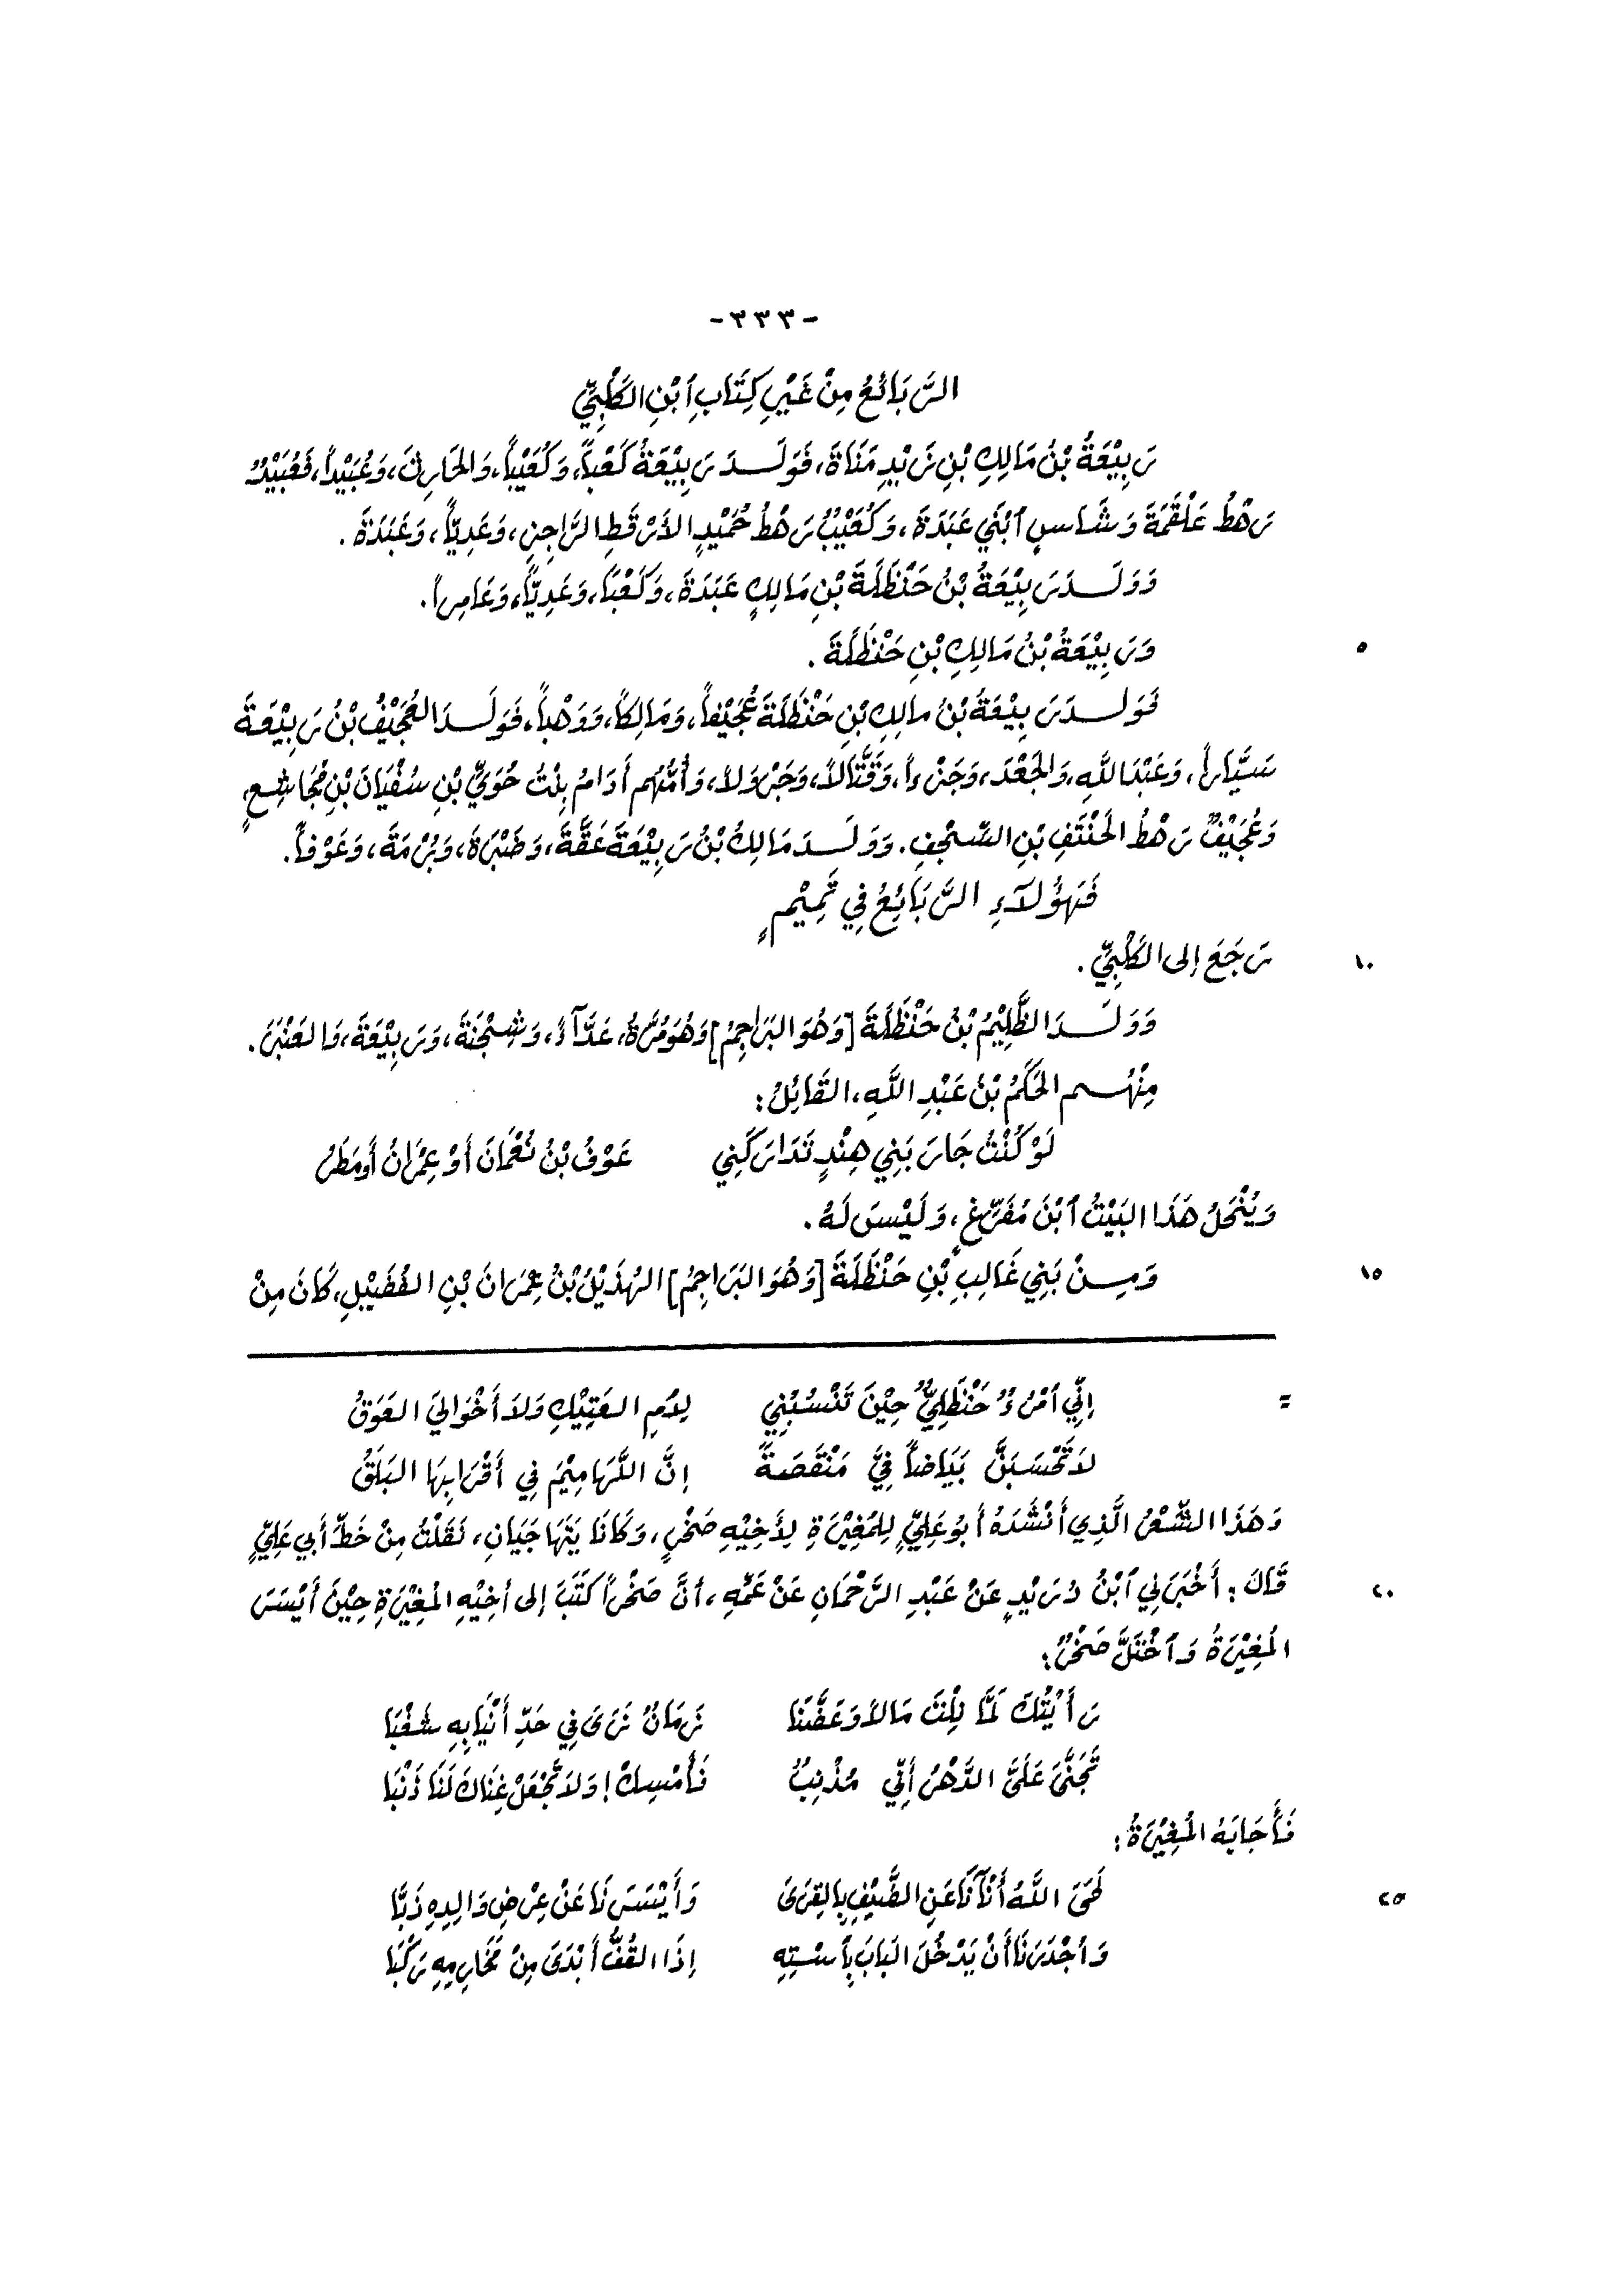 -٣٣٣-
الرَّبَائعُ مِنْ غَيْرِ كِتَابِ ٱبْنِ الكَلْبِيِّ
رَبِيْعَةُ بْنُ مَالِكِ بْنِ زَيْدِ مَنَاةَ، فَوَلَدَ رَبِيْعَةُ كَعْباً، وَكُعَيْباً، وَالحَارِثَ، وَعُبَيْداً، فَعُبَيْدٌ
رَهْطُ عَلْقَمَةَ وَشَاسٍ ٱبْنَي عَبَدَةَ، وَكُعَيْبٌ رَهْطُ حُمَيْدٍ الأَرْقَطِ الرَّاجِزِ، وَعَدِيّاً، وَعَبَدَةَ.
وَوَلَدَ رَبِيْعَةُ بْنُ حَنْظَلَةَ بْنِ مَالِكٍ عَبَدَةَ، وَكَعْبَاً، وَعَدِيّاً، وَعَامِراً.
٥ وَرَبِيْعَةُ بْنُ مَالِكِ بْنِ حَنْظَلَةَ.
فَوَلَدَ رَبِيْعَةُ بْنُ مالِكِ بْنِ حَنْظَلَةَ عُجَيْفاً، وَمَالِكاً، وَوَهْباً، فَوَلَدَ العُجَيْفُ بْنُ رَبِيْعَةَ
سَيَّاراً، وَعَبْدَ اللَّهِ، وَالجَعْدَ، وَجَزْءاً، وَقَتَّالاً، وَجَرْوَلاً، وَأُمُّهُم أَدَامُ بِنْتُ حُوَيِّ بْنِ سُفْيَانَ بْنِ مُجَاشِعٍ،
وَعُجَيْفٌ رَهْطُ الحَنْتَفِ بْنِ السِّجْفِ. وَوَلَدَ مَالِكُ بْنُ رَبِيْعَةَ عَقَّةَ، وَضَبْرَةَ، وَبُرْمَةَ، وَعَوْفاً.
فَهَؤُلَآءِ الرَّبَائِعُ فِي تَمِيْمٍ
١٠ رَجَعَ إلى الكَلْبِيِّ.
وَوَلَدَ الظُّلِيْمُ بْنُ حَنْظَلَةَ [وَهُوَ البَرَاجِمُ] وَهُوَ مُرَّةُ، عَدَّآءً، وَشِجْنَةَ، وَرَبِيْعَةَ، وَالعَنْبَرَ.
مِنْهُم الحَكَمُ بْنُ عَبْدِ اللَّهِ، القَائِلُ:
لَوْ كُنْتُ جَارَ بَنِي هِنْدٍ تَدَارَكَنِي عَوْفُ بْنُ نُعْمَانَ أَوْ عِمْرَانُ أَو مَطَرُ
وَيُنْحَلُ هَذَا البَيْتُ ٱبْنَ مُفَرِّغٍ، وَلَيْسَ لَهُ.
١٥ وَمِنْ بَنِي غَالِبِ بْنِ حَنْظَلَةَ [وَهُوَ البَرَاجِمُ] الهُذَيْلُ بْنُ عِمْرَانَ بْنِ الفُضَيْلِ، كَانَ مِنْ
= إِنِّي ٱمْرُءٌ حَنْظَلِيٌّ حِيْنَ تَنْسُبُنِي لِامِ العَتِيْكِ وَلاَ أَخْوَاليَ العَوَقُ
لاَ تَحْسَبَنَّ بَيَاضاً فِيَّ مَنْقَصَةً إِنَّ اللَّهَامِيْمَ فِي أَقْرَابِهَا البَلَقُ
وَهَذَا الشِّعْرُ الَّذِي أَنْشَدَهُ أَبُو عَلِيٍّ لِلمُغِيْرَةِ لِأَخِيْهِ صَخْرٍ، وَكَانَا يَتَهَاجَيَانِ، نَقَلْتُ مِنْ خَطِّ أَبي عَلِيٍّ
٢٠ قَالَ: أَخْبَرَنِي ٱبْنُ دُرَيْدٍ عَنْ عَبْدِ الرَّحْمَانِ عَنْ عَمِّهِ، أنَّ صَخْراً كَتَبَ إلى أخِيْهِ المُغِيْرَةِ حِيْنَ أَيْسَرَ
المُغِيْرَةُ وَٱخْتَلَّ صَخْرٌ:
رَأَيْتُكَ لَمَّا نِلْتَ مَالاً وَعَضَّنَا زَمَانٌ نَرَى فِي حَدِّ أَنْيَابِهِ شَغْبَا
تَجَنَّى عَلَيَّ الدَّهْرُ أَنِّي مُذْنِبٌ فَأَمْسِكْ! وَلاَ تَجْعَلْ غِنَاكَ لَنَا ذَنْبَا
فَأَجَابَهُ المُغِيْرَةُ:
٢٥ لَحَى اللَّهُ أَنْآنَا عَنِ الضَّيْفِ بِالقِرَى وَأَيْسَرَنَا عَنْ عِرْضِ وَالِدِهِ ذَبَّا
وَأَجْدَرَنَا أَنْ يَدْخُلَ البَابَ بِٱسْتِهِ إِذَا القُفُّ أَبْدَى مِنْ مَخَارِمِهِ رَكْبَا